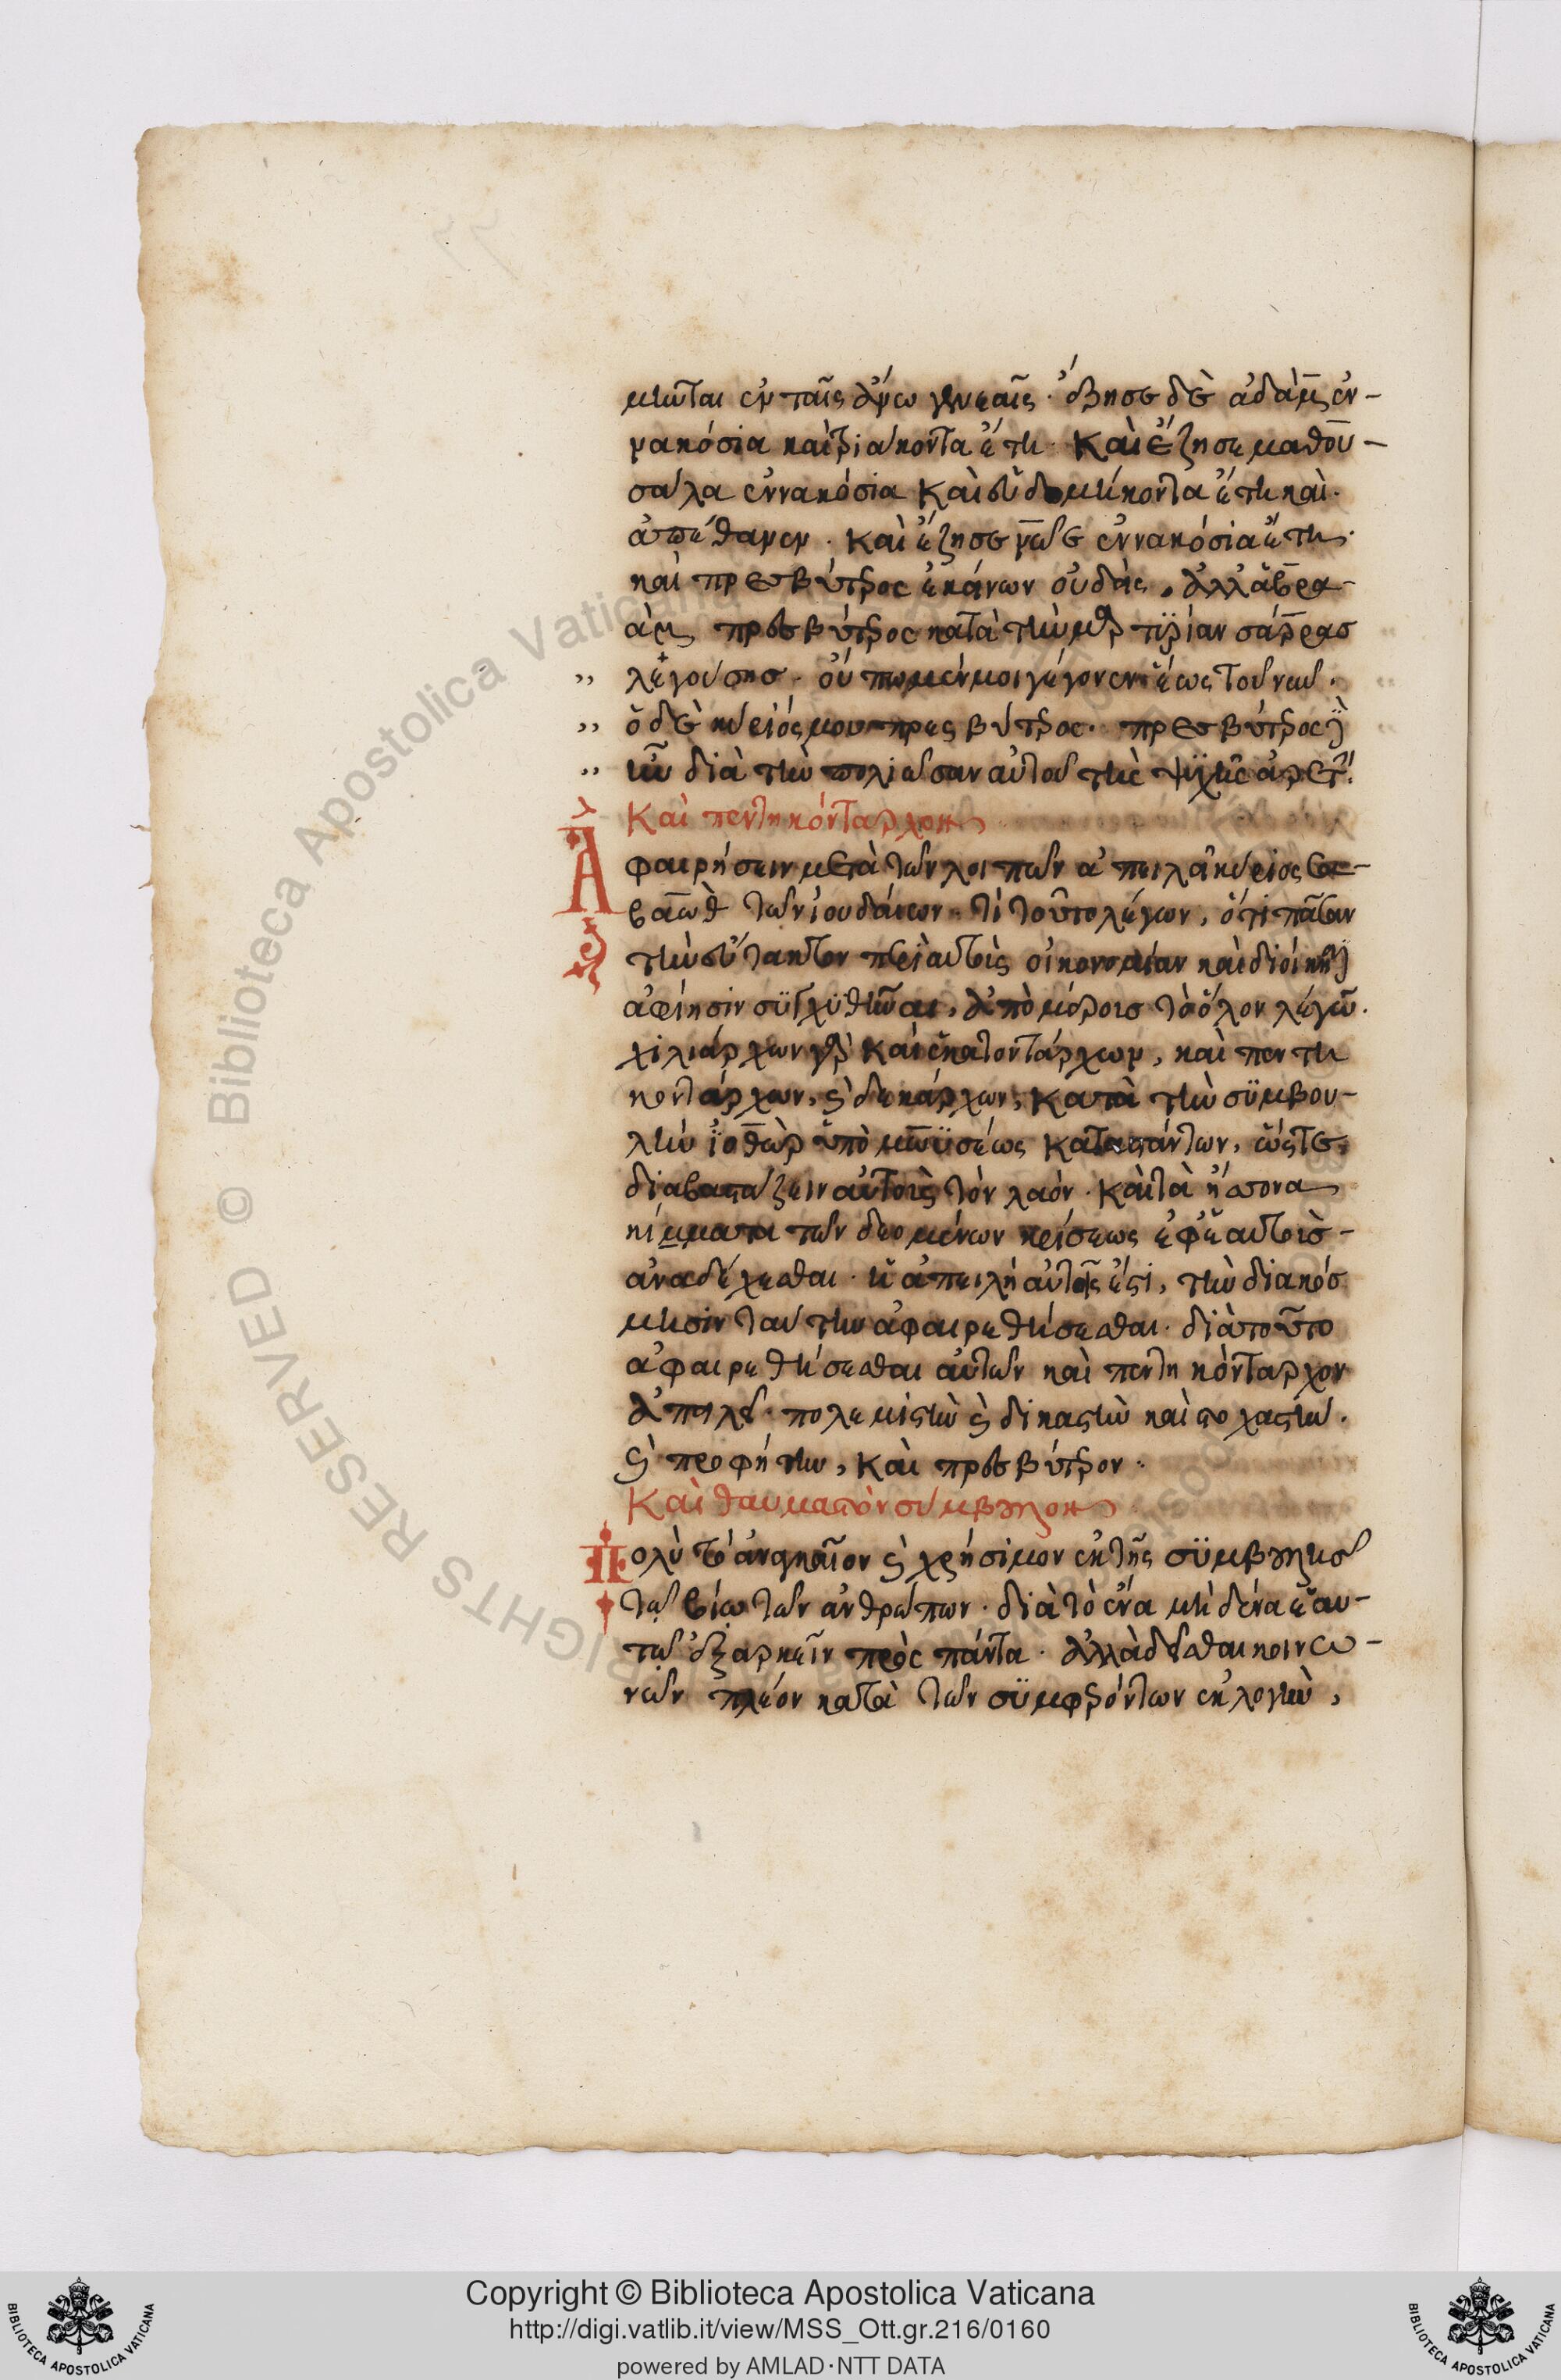 μνῶνται ἐν ταῖς ἄνω γενεαῖς· ἔζησε δὲ ἀδὰμ ἐν-
νακόσια καὶ τριάκοντα ἔτη· Καὶ ἔζησε μαθου-
σάλα ἐννακόσια Καὶ ἑβδομήκοντα ἔτη καὶ·
ἀπέθανεν· καὶ ἔζησε νῶε ἐννακόσια ἔτη·
καὶ πρεσβύτερος ἐκείνων οὐδείς. ἀλλ' ἀβρα-
ὰμ πρεσβύτερος κατὰ τὴν μαρτυρίαν σάρρας
,, λεγούσης· οὔπω μέν μοι γέγονεν ἕως τοῦ νῦν·
,, ὁ δὲ κύριός μου πρεσβύτερος· πρεσβύτερος
,, ἦν διὰ τὴν πολιὰν αὐτοῦ τῆς ψυχῆς ἀρετ
Καὶ πεντηκόνταρχον
Ἀφαιρήσειν μετὰ τῶν λοιπῶν ἀπειλεῖ κύριος σα-
βαὼθ τῶν ἰουδαίων· τί τοῦτο λέγων, ὅτι πᾶσαν
τὴν εὔτακτον περὶ αὐτοὺς οἰκονομίαν καὶ διοίκησιν
ἀφίησιν συγχυθῆναι, ἀπὸ μέρους τὸ ὅλον λέγων·
χιλιάρχων γὰρ Καὶ ἑκατοντάρχων, καὶ πεντη
κοντάρχων, καὶ δεκάρχων, Κατὰ τὴν συμβου-
λὴν ἰοθὼρ ὑπὸ μωυσέως Καταστάντων, ὥστε
διαβαστάζειν αὐτοῖς τὸν λαόν· Καὶ τὰ ἥττονα
κρίμματα τῶν δεομένων κρίσεως ἐφ' ἑαυτοὺς-
ἀναδέχεσθαι· ἡ ἀπειλὴ αὐτοῖς ἐστι, τὴν διακόσ
μησιν ταύτην ἀφαιρεθήσεσθαι· διὰ τοῦτο
ἀφαιρεθήσεσθαι αὐτῶν καὶ πεντηκόνταρχον
ἀπειλεῖ· πολεμιστὴν καὶ δικαστὴν καὶ στοχαστήν·
καὶ προφήτην, Καὶ πρεσβύτερον·
Καὶ θαυμαστὸν σύμβουλον
Πολὺ τὸ ἀναγκαῖον καὶ χρήσιμον ἐκ τῆς συμβουλῆς
τῷ βίῳ τῶν ἀνθρώπων· διὰ τὸ ἕνα μηδένα ἑαυ-
τῷ ἐξαρκεῖν πρὸς πάντα· ἀλλὰ δεῖσθαι κοινω-
νῶν πλέον κατὰ τῶν συμφερόντων ἐκλογὴν,
Copyright © Biblioteca Apostolica Vaticana
http://digi.vatlib.it/view/MSS_Ott.gr.216/0160
powered by AMLAD·NTT DATA
BIBLIOTECA APOSTOLICA VATICANA
BIBLIOTECA APOSTOLICA VATICANA
RIGHTS RESERVED © Biblioteca Apostolica Vaticana